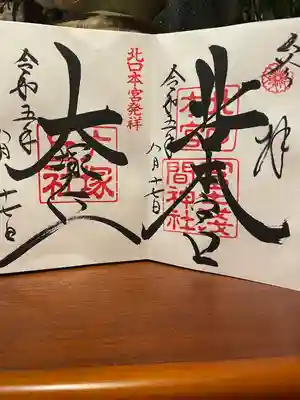 奉拝
北口本宮
北口本宮冨士浅間神社
令和五年八月十七日
北口本宮発祥
大塚丘
大塚丘社
令和五年八月十七日